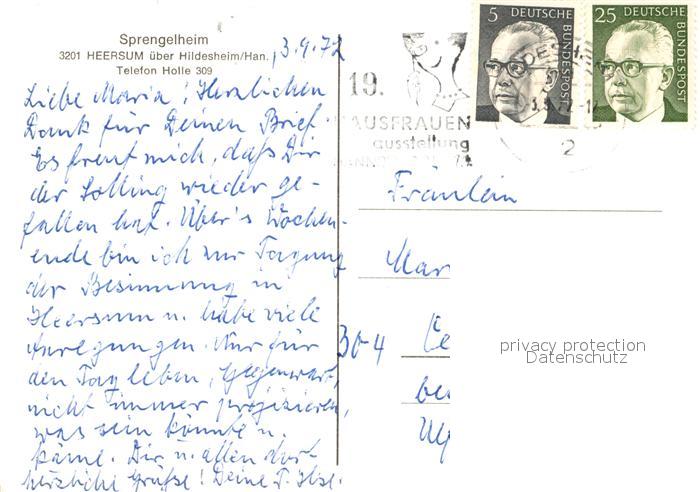 Sprengelheim
3201 HEERSUM über Hildesheim/Han.
Telefon Holle 309
3.9.72
Liebe Maria! Herzlichen
Dank für Deinen Brief.
Es freut mich, daß Dir
der Solling wieder ge-
fallen hat. Über's Wochen-
ende bin ich zur Tagung
der Besinnung in
Heersum u. habe viele
Anregungen. Nur für
den Tag leben, Gegenwart,
nicht immer projizieren,
was sein könnte u.
käme. Dir u. allen dort
herzliche Grüße! Deine T. Ilse.
19.
AUSFRAUEN
ausstellung
5 DEUTSCHE BUNDESPOST
25 DEUTSCHE BUNDESPOST
2
Fräulein
Mar
304 Ce
be
privacy protection
Datenschutz